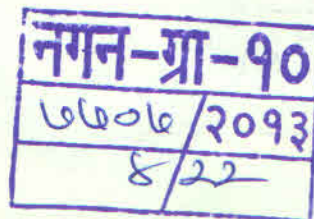 नगन-ग्रा-१०
७७०७/२०१३
४/22